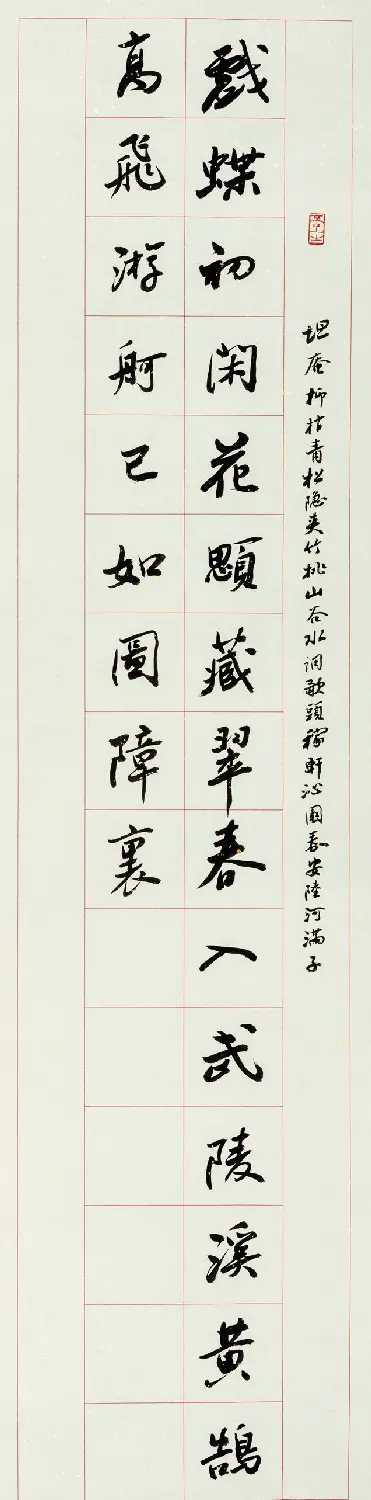 坦庵柳梢青松隱夾竹桃山谷水調歌頭稼軒沁園春安陸河滿子
戲蝶初閑花顋藏翠春入武陵溪黃鵠
高飛游舸已如圖障裏